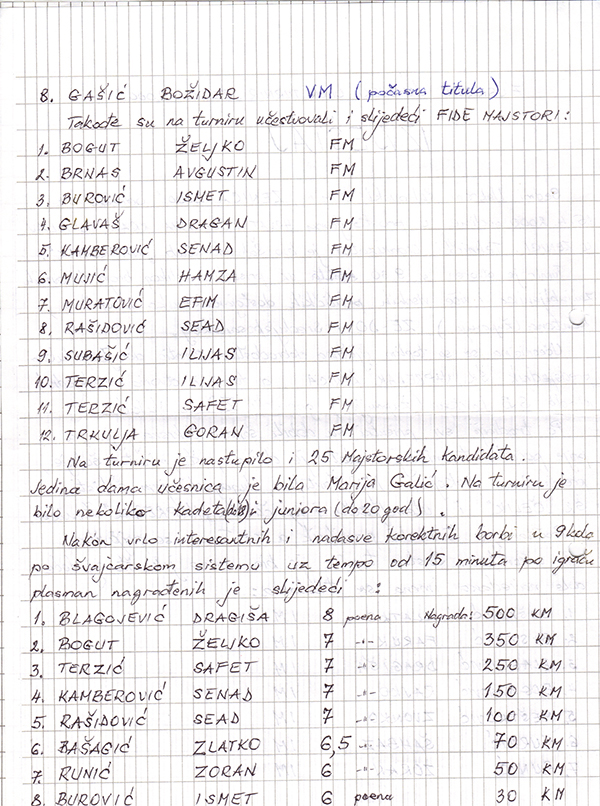 8. GAŠIĆ BOŽIDAR VM (počasna titula)
Takođe su na turniru učestvovali i slijedeći FIDE MAJSTORI:
1. BOGUT ŽELJKO FM
2. BRNAS AVGUSTIN FM
3. BUROVIĆ ISMET FM
4. GLAVAŠ DRAGAN FM
5. KAMBEROVIĆ SENAD FM
6. MUJIĆ HAMZA FM
7. MURATOVIĆ EFIM FM
8. RAŠIDOVIĆ SEAD FM
9. SUBAŠIĆ ILIJAS FM
10. TERZIĆ ILIJAS FM
11. TERZIĆ SAFET FM
12. TRKULJA GORAN FM
Na turniru je nastupilo i 25 Majstorskih kandidata.
Jedina dama učesnica je bila Marija Galić. Na turniru je
bilo nekoliko kadeta i juniora (do 20 god).
Nakon vrlo interesantnih i nadasve korektnih borbi u 9 kola
po švajcarskom sistemu uz tempo od 15 minuta po igraču
plasman nagrađenih je slijedeći :
1. BLAGOJEVIĆ DRAGIŠA 8 poena Nagrada: 500 KM
2. BOGUT ŽELJKO 7 -"- 350 KM
3. TERZIĆ SAFET 7 -"- 250 KM
4. KAMBEROVIĆ SENAD 7 -"- 150 KM
5. RAŠIDOVIĆ SEAD 7 -"- 100 KM
6. BAŠAGIĆ ZLATKO 6,5 -"- 70 KM
7. RUNIĆ ZORAN 6 -"- 50 KM
8. BUROVIĆ ISMET 6 poena 30 KM